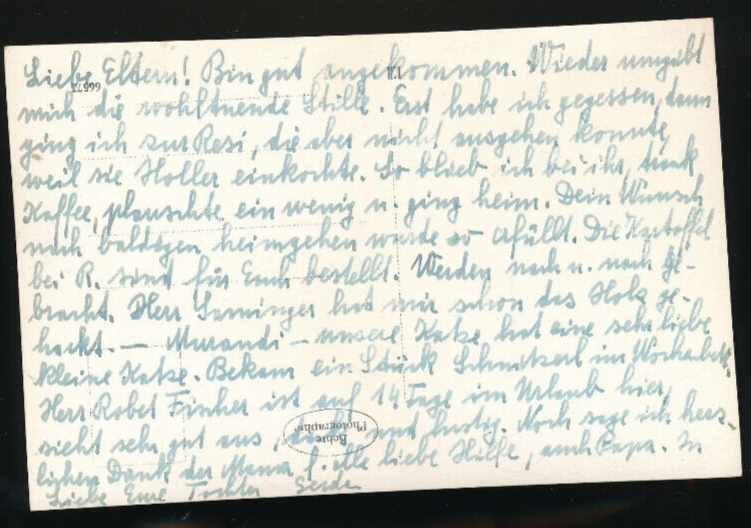 Liebe Eltern! Bin gut angekommen. Wieder umgibt
mich die wohltuende Stille. Erst habe ich gegessen, dann
ging ich zur Resi, die aber nicht ausgehen konnte,
weil sie Holler einkochte. So blieb ich bei ihr, trank
Kaffee, plauschte ein wenig u. ging heim. Dein Wunsch
nach baldigen heimgehen wurde so erfüllt. Die Kartoffel
bei R. sind für Euch bestellt. Werden nach u. nach ge-
bracht. Herr hat mir schon das Holz ge-
hackt. — Murandi – unsere Katze hat eine sehr liebe
kleine Katze. Bekam ein Stück Schnitzerl im
Herr Robet ist auf 14 Tage im Urlaub hier,
sieht sehr gut aus, und lustig. Noch sage ich herz-
lichen Dank der Mama f. alle liebe Hilfe, auch Papa. In
Liebe Eure Tochter
66573
Echte
Photographie